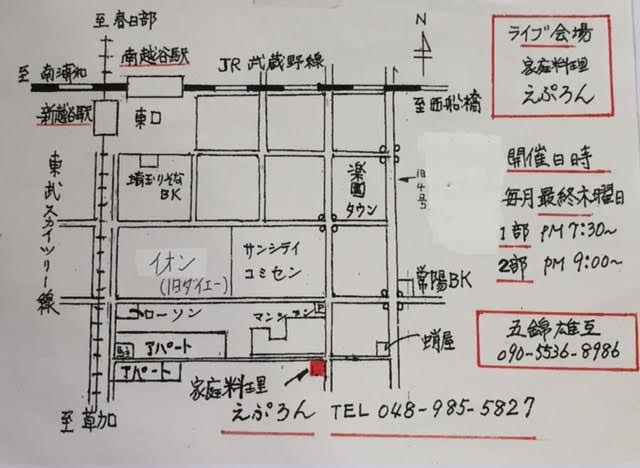 至春日部
南越谷駅
JR武蔵野線
N
至南浦和
至西船橋
新越谷駅
東口
東武スカイツリー線
埼玉りそな
BK
楽園
タウン
旧4号
イオン
(旧ダイエー)
サンシティ
コミセン
常陽BK
ローソン
マンション
アパート
アパート
蛸屋
家庭料理
えぷろん TEL 048-985-5827
至草加
ライブ会場
家庭料理
えぷろん
開催日時
毎月最終木曜日
1部 PM 7:30~
2部 PM 9:00~
五錦雄互
090-5536-8986